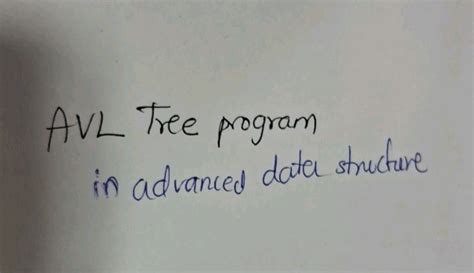 AVL Tree program
in advanced data structure